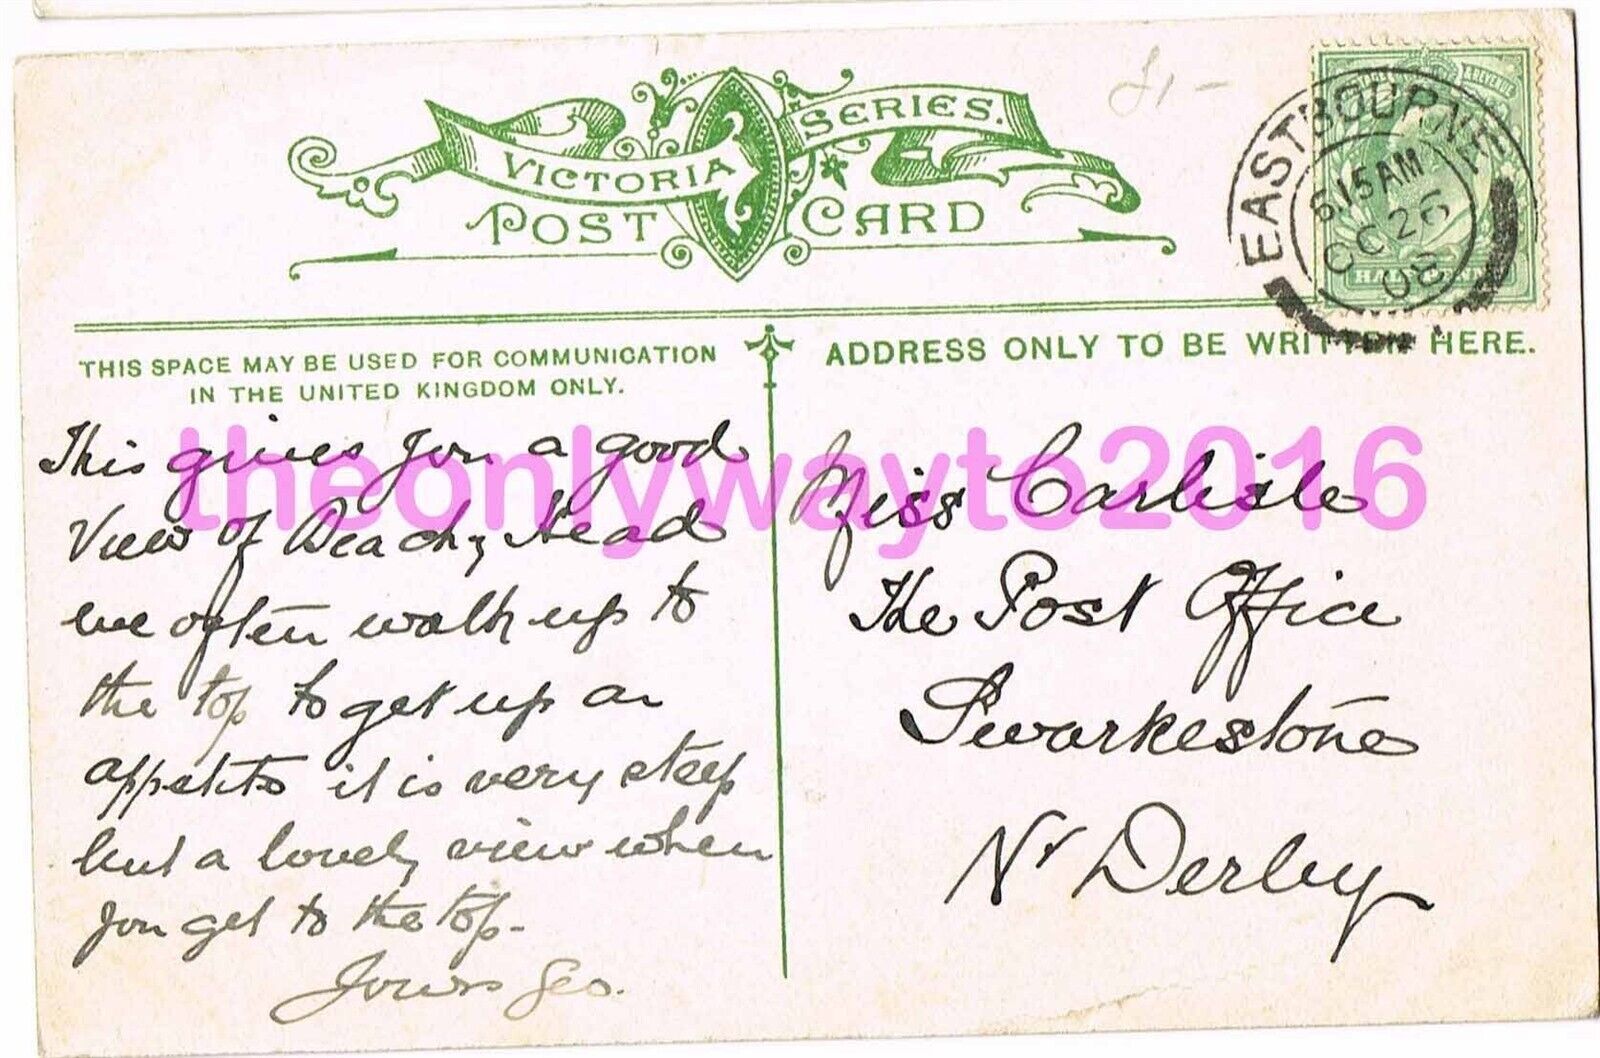 £1-
VICTORIA SERIES.
POST CARD
EASTBOURNE
6.15 AM
OC 26
08
POSTAGE & REVENUE
HALFPENNY
THIS SPACE MAY BE USED FOR COMMUNICATION
IN THE UNITED KINGDOM ONLY.
ADDRESS ONLY TO BE WRITTEN HERE.
This gives you a good
View of Beachy Head
we often walk up to
the top to get up an
appetite it is very steep
but a lovely view when
you get to the top-
Yours Geo.
Miss Carlisle
The Post Office
Swarkestone
Nr Derby
theonlywayto2016